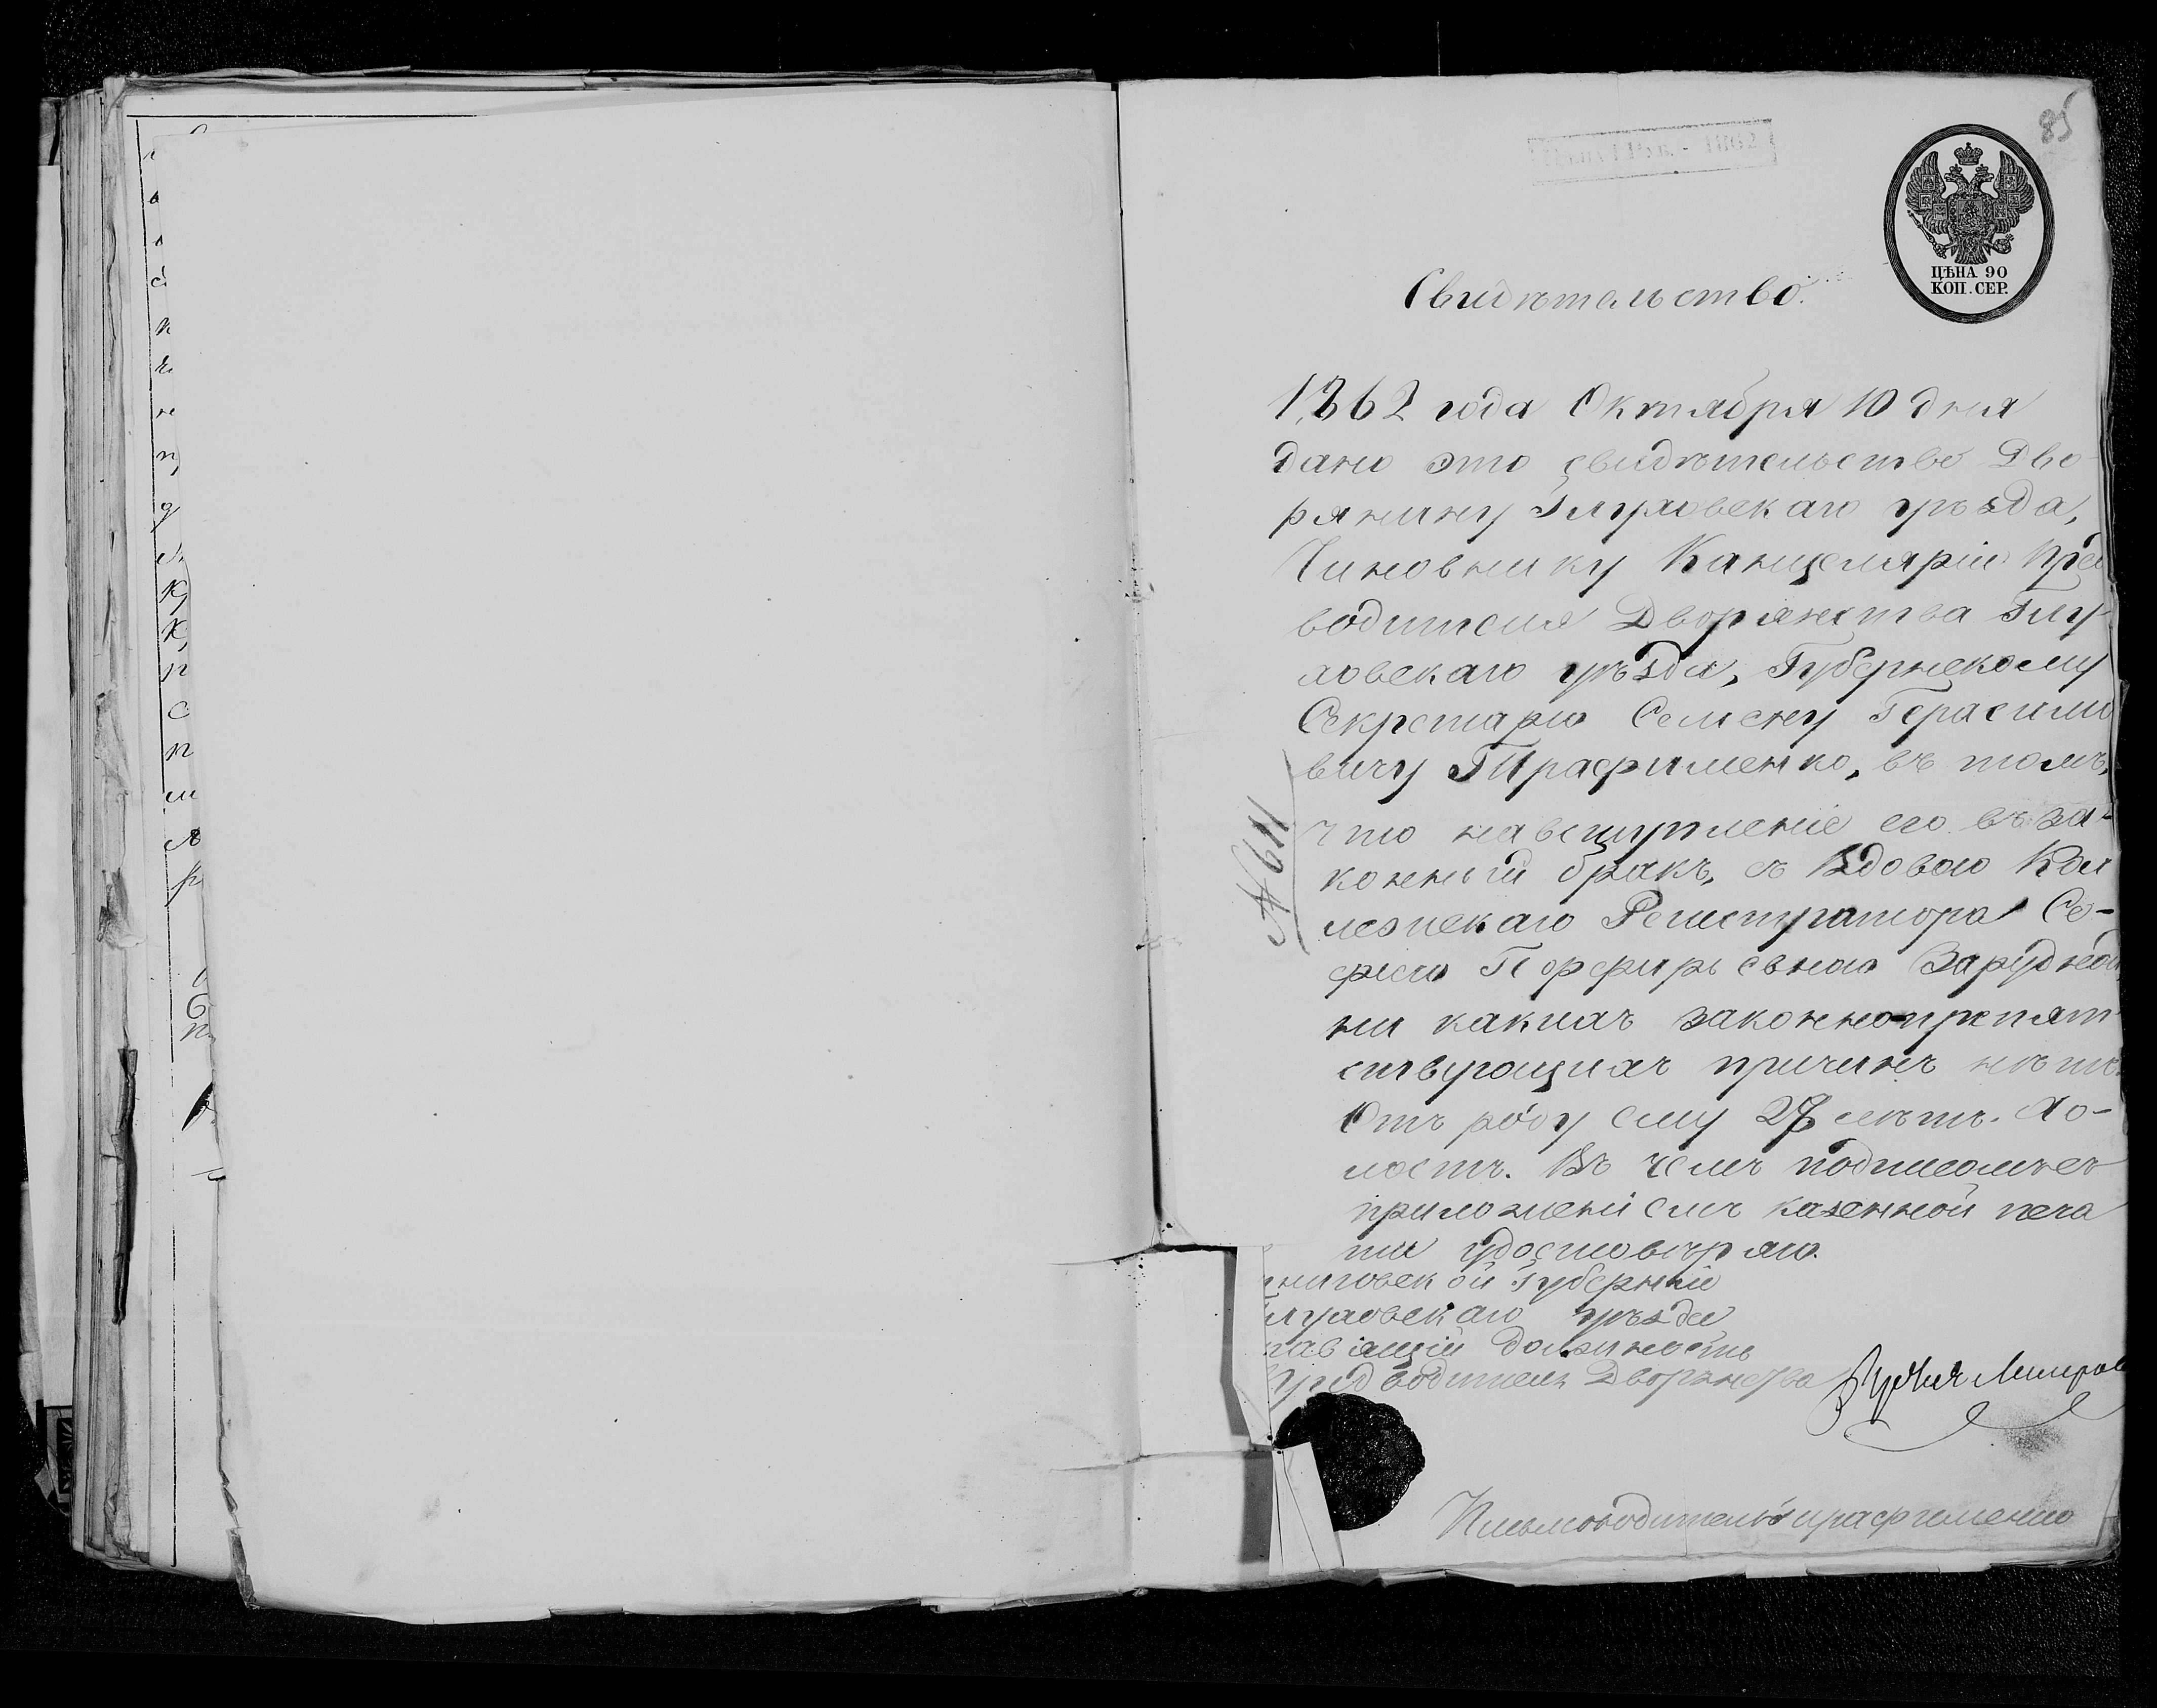 85
1862
ЦѢНА 90
КОП. СЕР.
Свидѣтельство.
1862 года Октября 10 дня
дано это свидѣтельство Дво-
рянину Глуховскаго уѣзда,
Чиновнику Канцеляріи Пред
водителя Дворянства Глу-
ховскаго уѣзда, Губернскому
Секретарю Семену Герасимо
вичу Трафименко, въ томъ,
что на вступленіе его въ за-
конный бракъ, съ Вдовою Кол
лежскаго Регистратора Со-
фіею Порфирьевною Зарудной
ни какихъ законно-препят
ствующихъ причинъ нѣтъ.
Отъ роду ему 28 лѣтъ. Хо-
лостъ. Въ чемъ подписомъ съ
приложеніемъ казенной печа
ти удостовѣряю.
ниговской Губерніи
луховскаго уѣзда
равляющій должность
Предводителя Дворянства
№ 611
Письмоводитель Трафименко